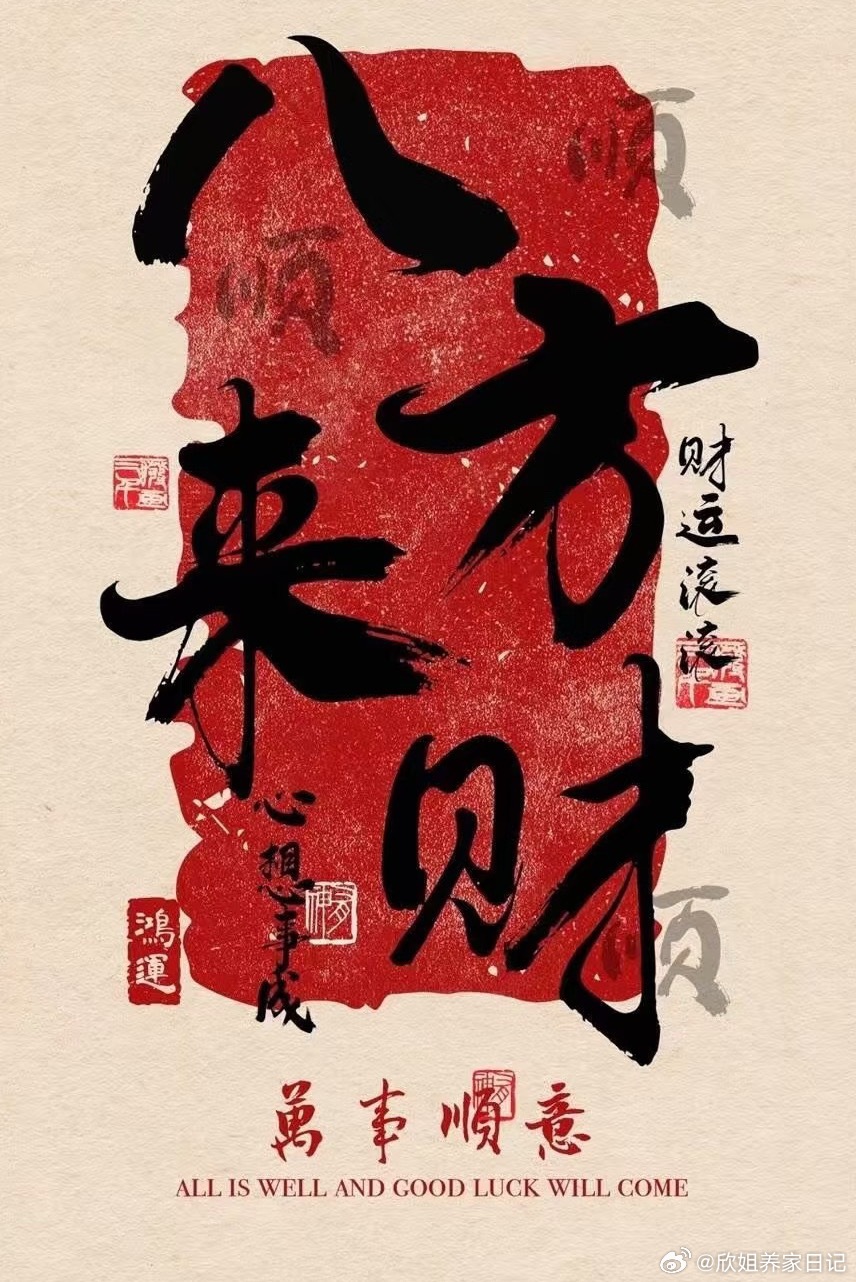 八方来财
顺
顺
财运滚滚
心想事成
顺
鸿運
萬事順意
ALL IS WELL AND GOOD LUCK WILL COME
@欣姐养家日记